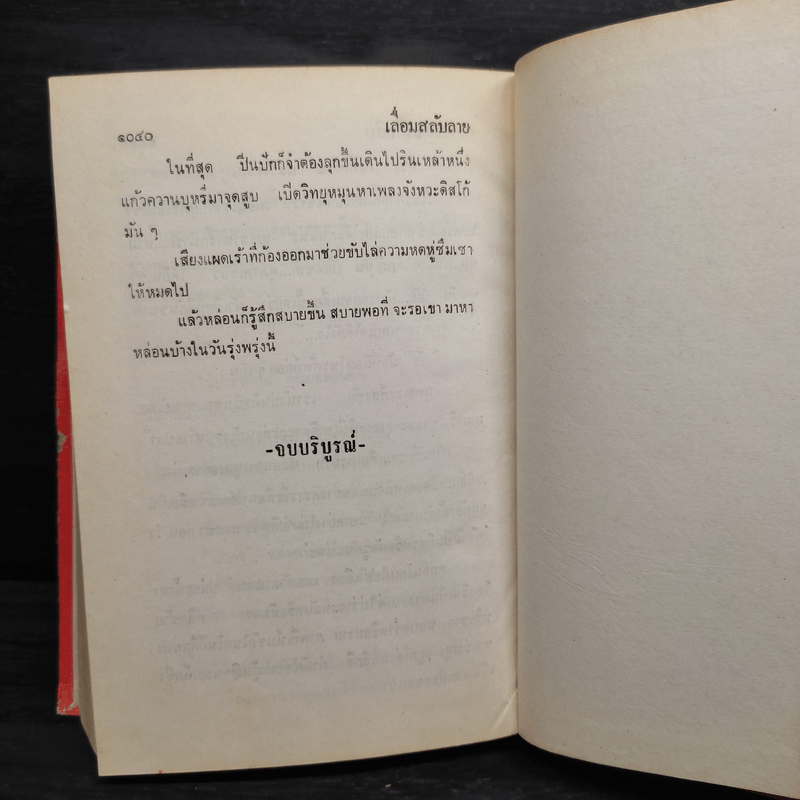 ๑๐๔๐ เลื่อมสลับลาย
ในที่สุด ปีนปักก็จำต้องลุกขึ้นเดินไปรินเหล้าหนึ่ง
แก้วควานบุหรี่มาจุดสูบ เปิดวิทยุหมุนหาเพลงจังหวะดิสโก้
มัน ๆ
เสียงแผดเร้าที่ก้องออกมาช่วยขับไล่ความหดหู่ซึมเซา
ให้หมดไป
แล้วหล่อนก็รู้สึกสบายขึ้น สบายพอที่ จะรอเขา มาหา
หล่อนบ้างในวันรุ่งพรุ่งนี้
-จบบริบูรณ์-